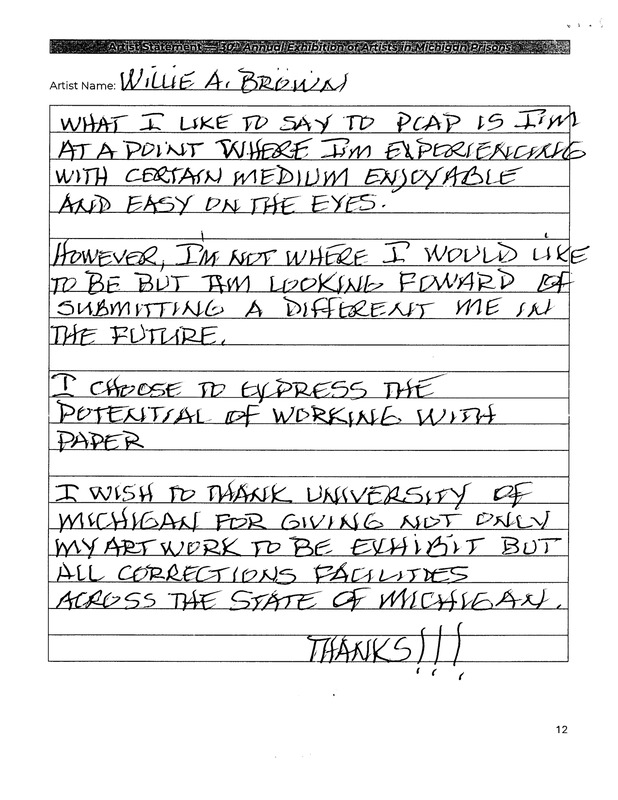 Artist Statement — 30th Annual Exhibition of Artists in Michigan Prisons
Artist Name: WILLIE A. BROWN
WHAT I LIKE TO SAY TO PCAP IS I'M
AT A POINT WHERE I'M EXPERIENCING
WITH CERTAIN MEDIUM ENJOYABLE
AND EASY ON THE EYES.
HOWEVER, I'M NOT WHERE I WOULD LIKE
TO BE BUT AM LOOKING FOWARD OF
SUBMITTING A DIFFERENT ME IN
THE FUTURE.
I CHOOSE TO EXPRESS THE
POTENTIAL OF WORKING WITH
PAPER
I WISH TO THANK UNIVERSITY OF
MICHIGAN FOR GIVING NOT ONLY
MY ART WORK TO BE EXHIBIT BUT
ALL CORRECTIONS FACILITIES
ACROSS THE STATE OF MICHIGAN.
THANKS!!!
12